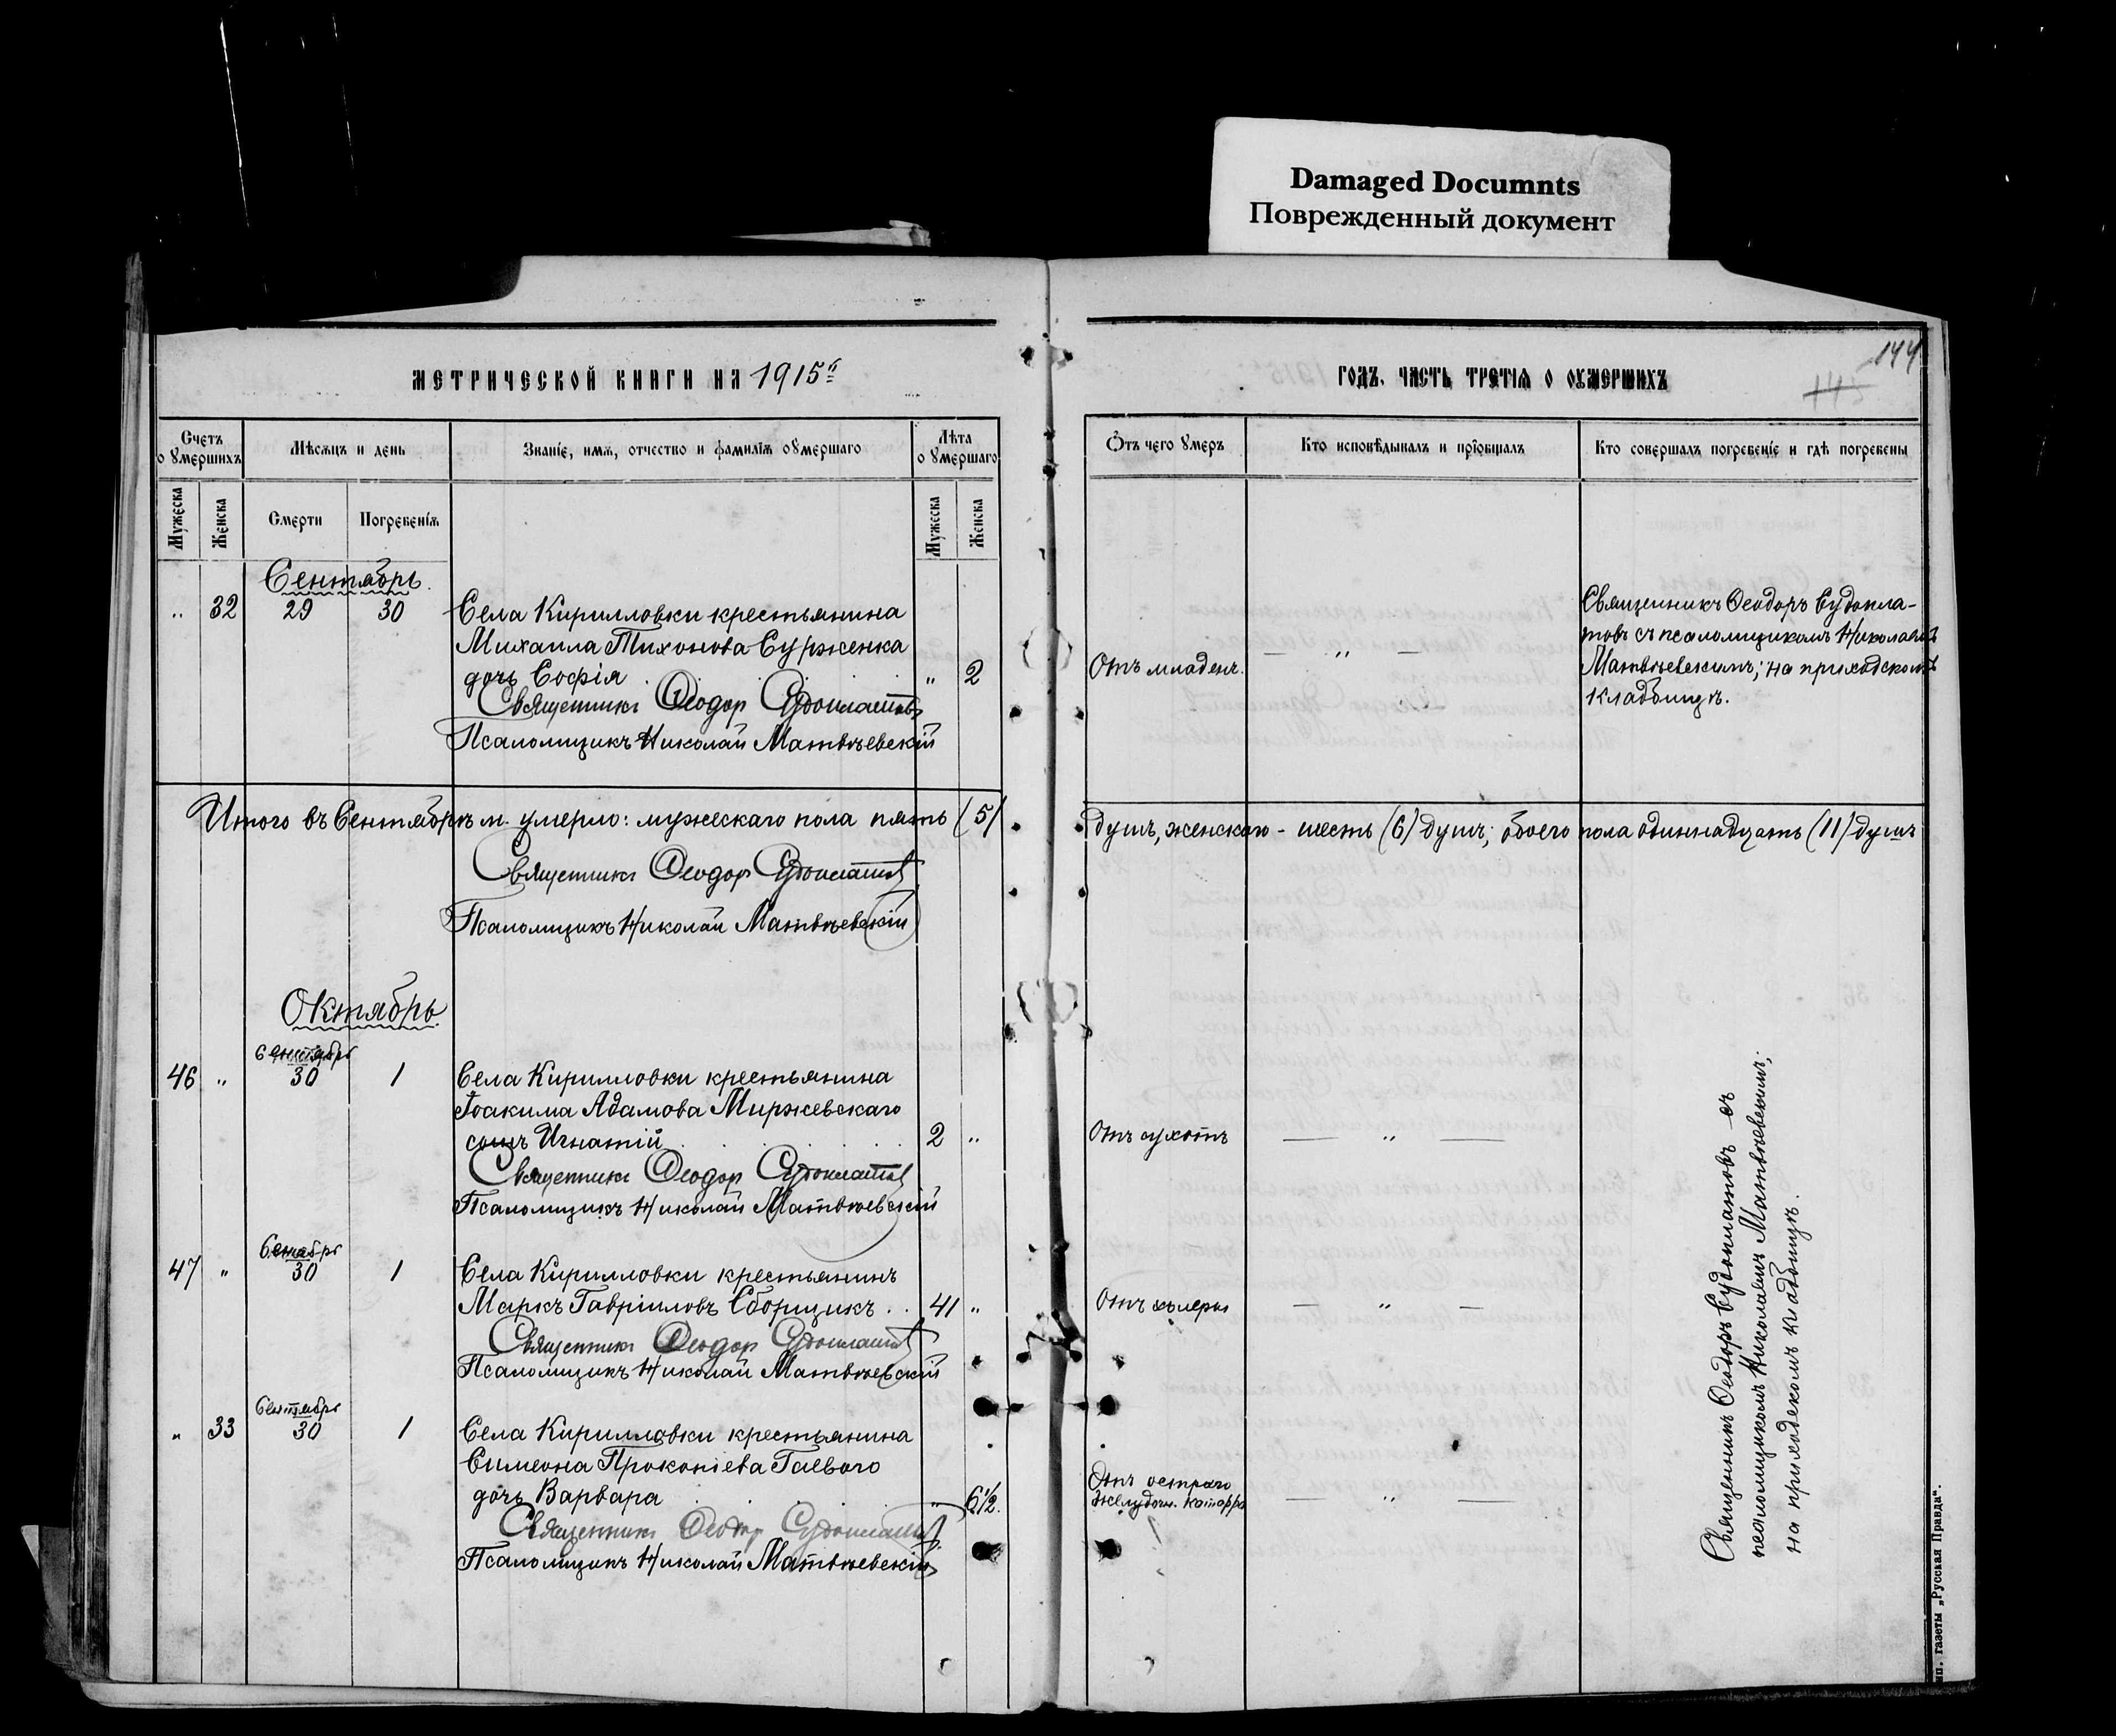 Damaged Documnts
Поврежденный документ
144
143
МЕТРИЧЕСКОЙ КНИГИ НА 1915й
ГОДЪ. ЧАСТЬ ТРЕТІЯ О ОУМЕРШИХЪ
Счетъ о умершихъ
Мѣсяцъ и день
Званіе, имя, отчество и фамилія оумершаго
Лѣта оумершаго
Отъ чего умеръ
Кто исповѣдывалъ и пріобщалъ
Кто совершалъ погребеніе и гдѣ погребены
Мужеска
Женска
Смерти
Погребенія
Мужеска
Женска
Сентябрь
„ 32 29 30 Села Кирилловки крестьянина
Михаила Тихонова Сурженка
дочь Софія . . . . „ 2
Отъ младен. — „ —
Священникъ Ѳеодоръ Судопла-
товъ съ псаломщикомъ Николаемъ
Матвѣевскимъ; на приходскомъ
кладбищѣ.
Священникъ Ѳеодоръ Судоплатовъ
Псаломщикъ Николай Матвѣевскій
Итого въ Сентябрѣ м. умерло: мужескаго пола пять (5) душъ, женскаго - шесть (6) душъ; обоего пола одиннадцать (11) душъ
Священникъ Ѳеодоръ Судоплатовъ
Псаломщикъ Николай Матвѣевскій
Октябрь
Сентябрь
46 „ 30 1 Села Кирилловки крестьянина
Іоакима Адамова Миржевскаго
сынъ Игнатій . . . . 2 „ Отъ сухотъ — „ —
Священникъ Ѳеодоръ Судоплатовъ
Псаломщикъ Николай Матвѣевскій
Сентябрь
47 „ 30 1 Села Кирилловки крестьянинъ
Маркъ Гавріиловъ Сборщикъ . . 41 „ Отъ холеры — „ —
Священникъ Ѳеодоръ Судоплатовъ
Псаломщикъ Николай Матвѣевскій
Сентябрь
„ 33 30 1 Села Кирилловки крестьянина
Симеона Прокопіева Гаевого
дочь Варвара . . . . „ 6½. Отъ остраго
желудочн. катарра — „ —
Священникъ Ѳеодоръ Судоплатовъ
Псаломщикъ Николай Матвѣевскій
Священникъ Ѳеодоръ Судоплатовъ съ
псаломщикомъ Николаемъ Матвѣевскимъ;
на приходскомъ кладбищѣ.
газеты „Русская Правда".